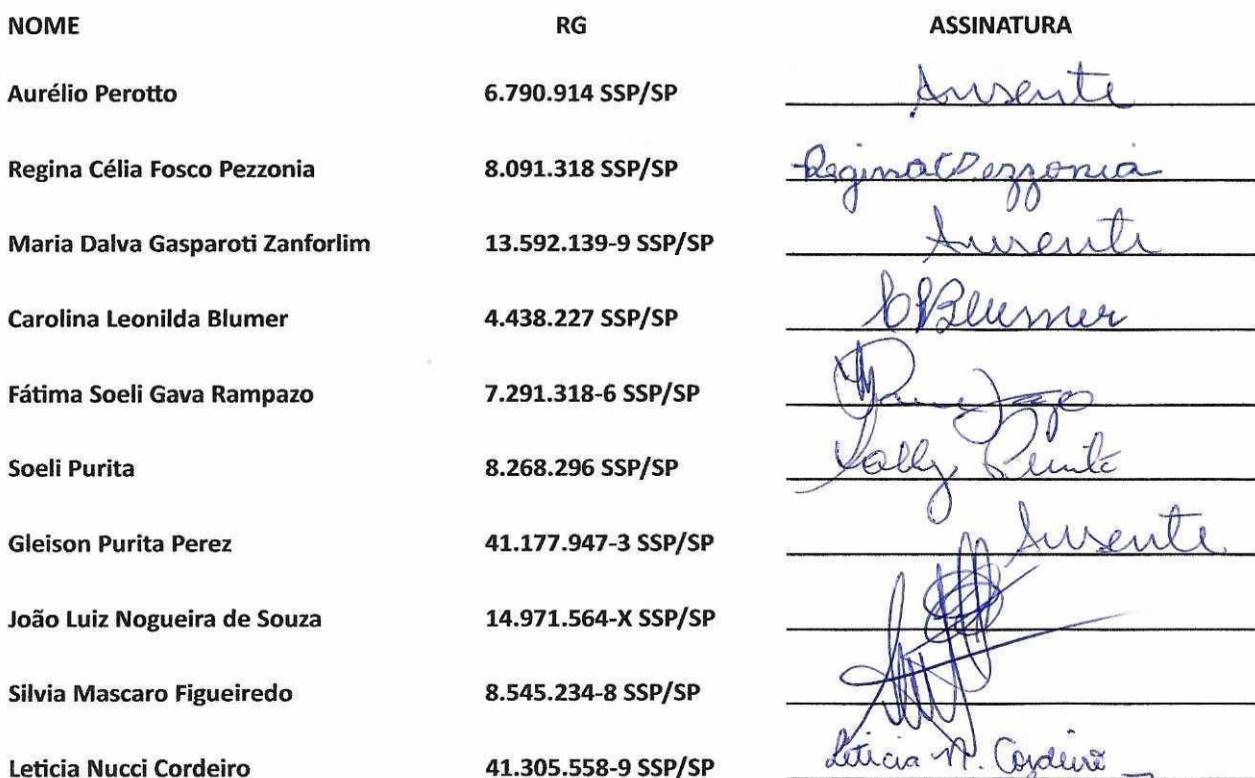 NOME RG ASSINATURA
Aurélio Perotto 6.790.914 SSP/SP Ausente
Regina Célia Fosco Pezzonia 8.091.318 SSP/SP Regina C Pezzonia
Maria Dalva Gasparoti Zanforlim 13.592.139-9 SSP/SP Ausente
Carolina Leonilda Blumer 4.438.227 SSP/SP Blumer
Fátima Soeli Gava Rampazo 7.291.318-6 SSP/SP
Soeli Purita 8.268.296 SSP/SP Purita
Gleison Purita Perez 41.177.947-3 SSP/SP Ausente
João Luiz Nogueira de Souza 14.971.564-X SSP/SP
Silvia Mascaro Figueiredo 8.545.234-8 SSP/SP
Leticia Nucci Cordeiro 41.305.558-9 SSP/SP Leticia N. Cordeiro